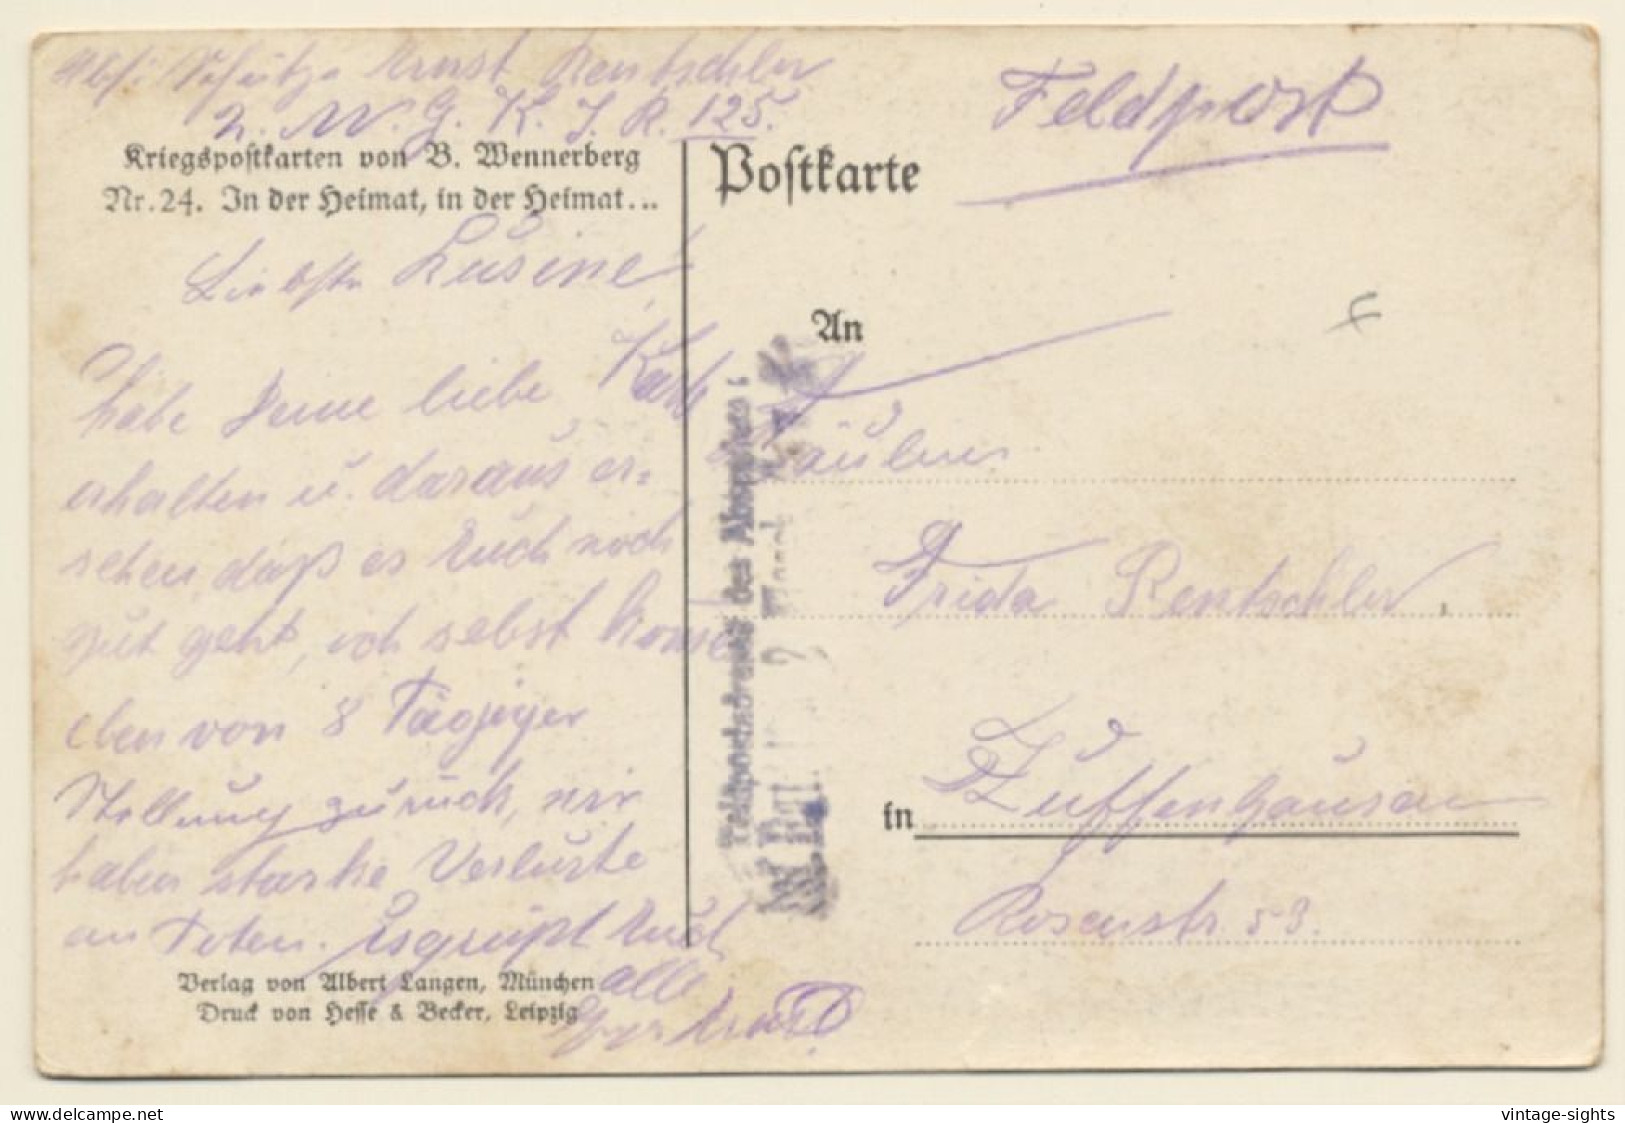 Abs: Schütze Ernst Rentschler
2. M. G. K. J. R. 125.
Kriegspostkarten von B. Wennerberg
Nr. 24. In der Heimat, in der Heimat...
Postkarte
Feldpost
Liebste Kusine!
Habe Deine liebe Karte
erhalten u. daraus er=
sehen, daß es Euch noch
gut geht, ich selbst komme
eben von 8 Tägiger
Stellung zurück, wir
haben starke Verluste
an Toten. Es grüßt Euch
alle
Ernst
Verlag von Albert Langen, München
Druck von Hesse & Becker, Leipzig
Feldpostadresse des Absenders:
An
Fräulein
Frida Rentschler,
in Zuffenhausen
Rosenstr. 53.
www.delcampe.net
vintage-sights